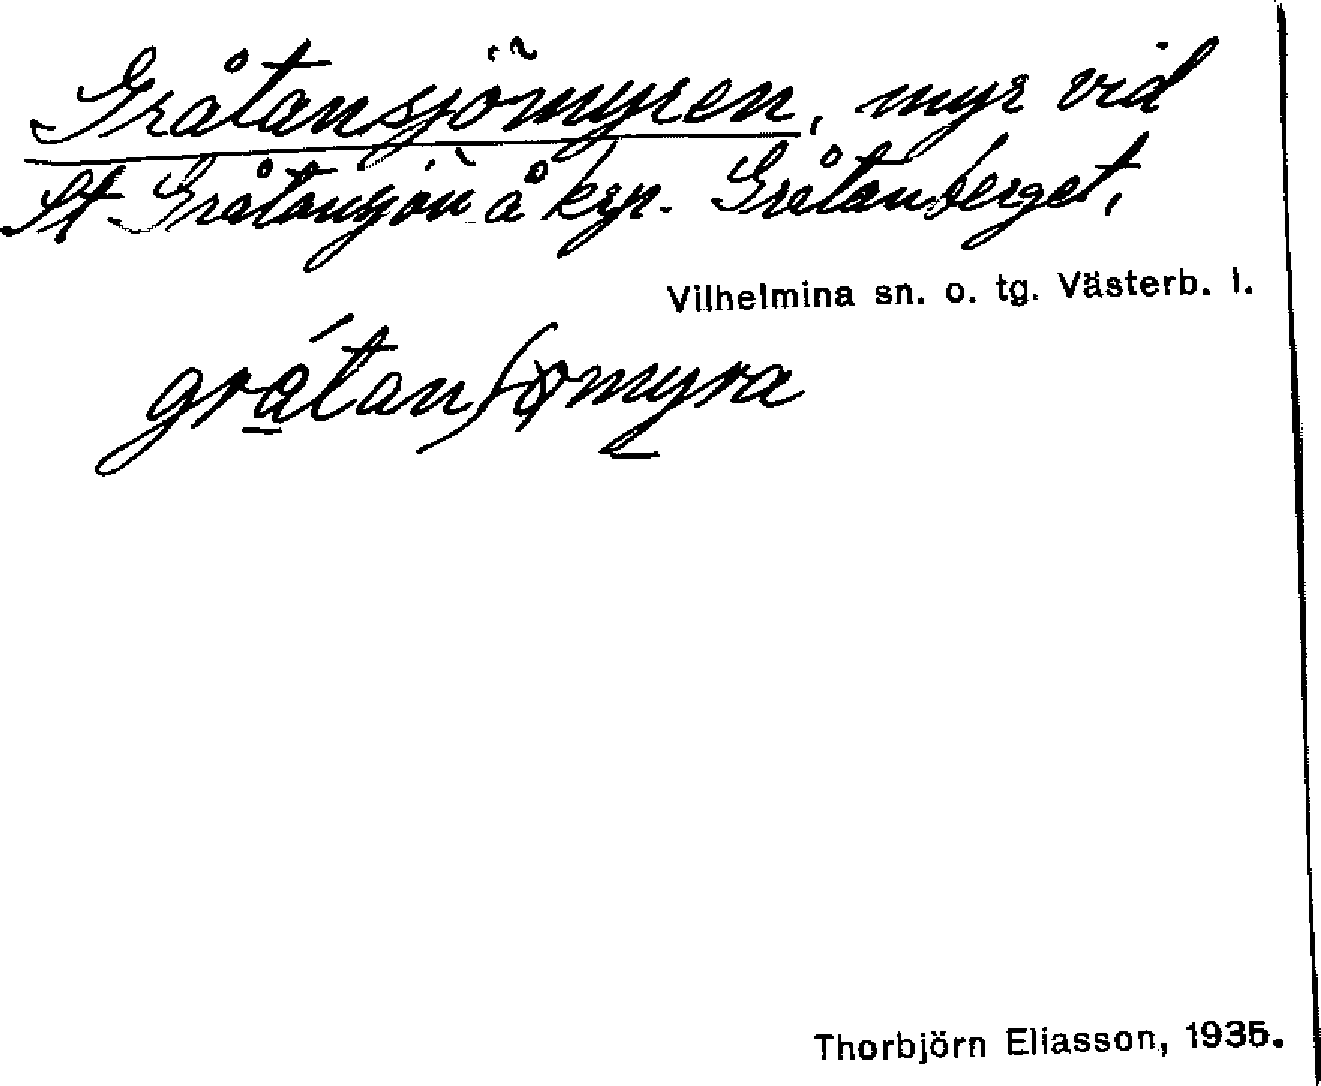 Gråtansjömyren, myr vid
St. Gråtansjön å kzp. Gråtanberget,
Vilhelmina sn. o. tg. Västerb. l.
grátanʃømyra
Thorbjörn Eliasson, 1935.